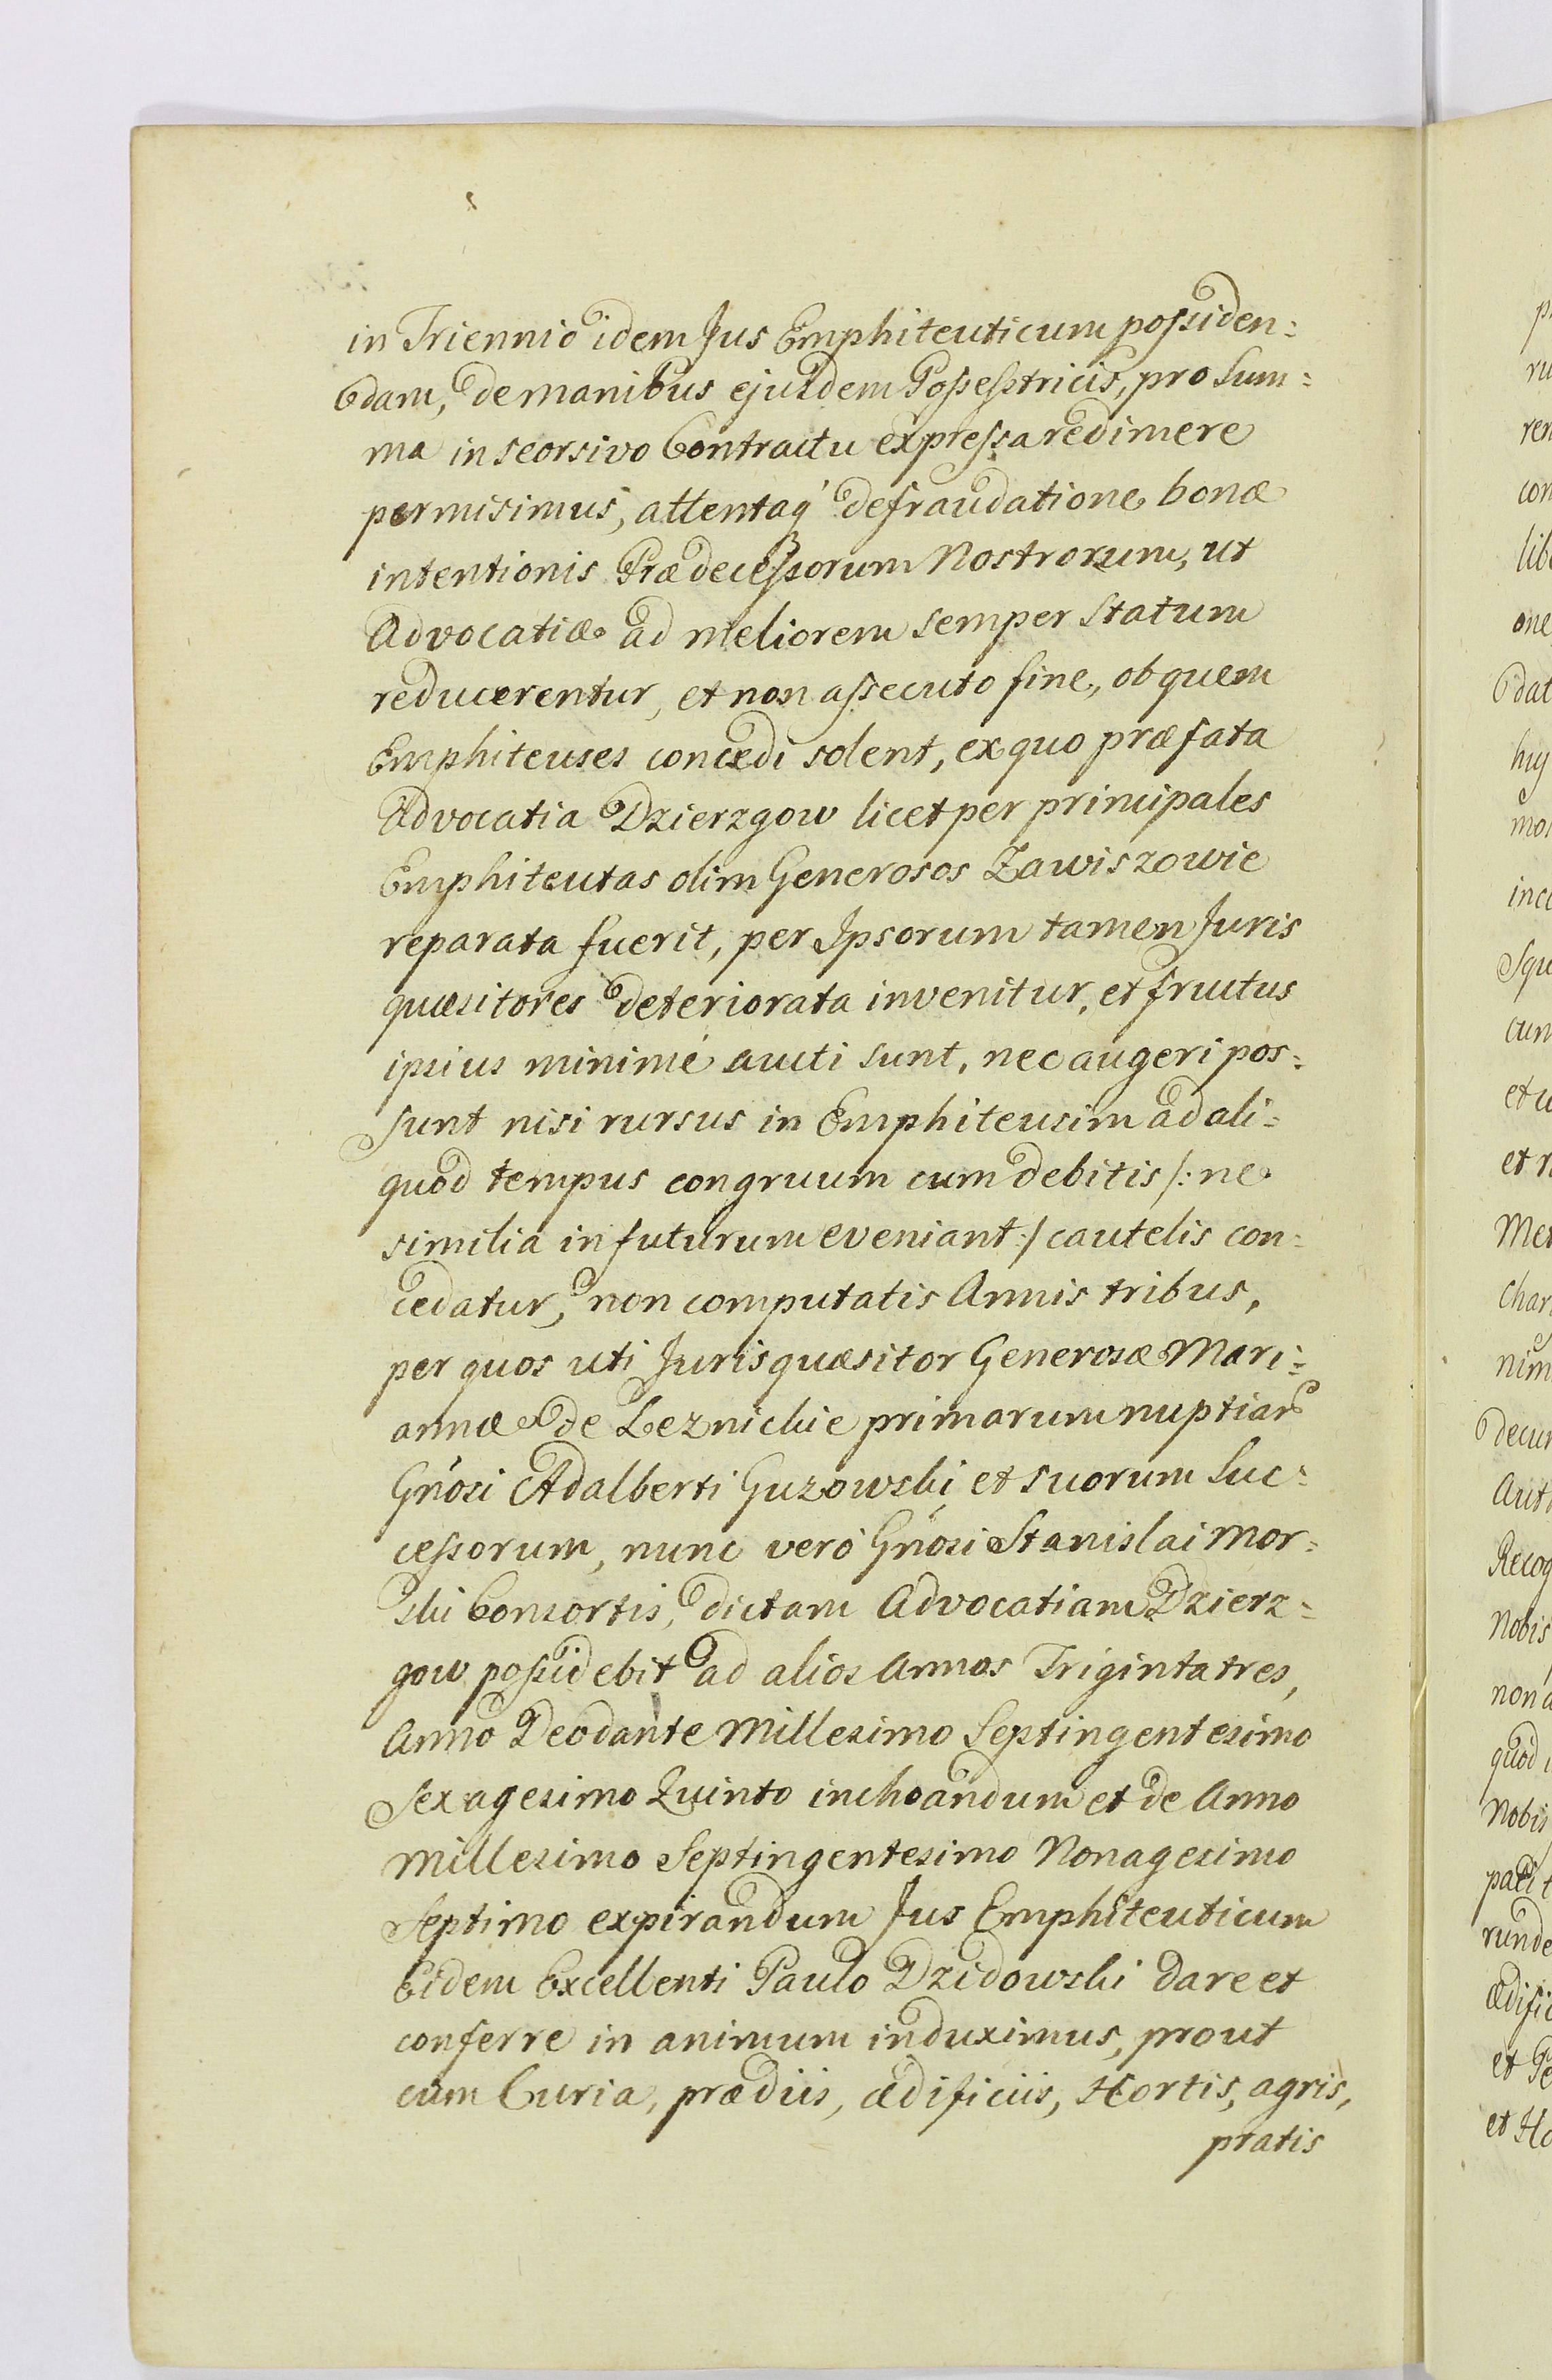 in Triennio idem Jus Emphiteuticum possiden=
dam, de manibus ejusdem Possesstricis, pro Sum=
ma in seorsivo Contractu expressa redimere
permisimus, attentaq́ defraudatione bonæ
intentionis Prædecessorum Nostrorum, ut
Advocatiæ ad meliorem semper Statum
reducerentur, et non assecuto fine, ob quem
Emphiteuses concedi solent, ex quo præfata
Advocatia Dzierzgow licet per principales
Emphiteutas olim Generosos Zawiszowie
reparata fuerit, per Ipsorum tamen Juris
quæsitores deteriorata invenitur, et fructus
ipsius minimé aucti sunt, nec augeri pos=
sunt nisi rursus in Emphiteusim ad ali=
quod tempus congruum cum debitis /: ne
similia in futurum eveniant :/ cautelis con=
cedatur, non computatis Annis tribus,
per quos uti Jurisquæsitor Generosæ Mari=
annæ de Leznickie primarum nuptiar
Gńosi Adalberti Guzowski et suorum Suc=
cessorum, nunc veró Gńosi Stanislai Mor=
ski Consortis, dictam Advocatiam Dzierz=
gow possidebit ad alios Annos Triginta tres,
Anno Deo dante Millesimo Septingentesimo
Sexagesimo Quinto inchoandum et de Anno
Millesimo Septingentesimo Nonagesimo
Septimo expirandum Jus Emphiteuticum
Eidem Excellenti Paulo Dzidowski dare et
conferre in animum induximus, prout
cum Curia, prædiis, ædificiis, Hortis, agris,
pratis